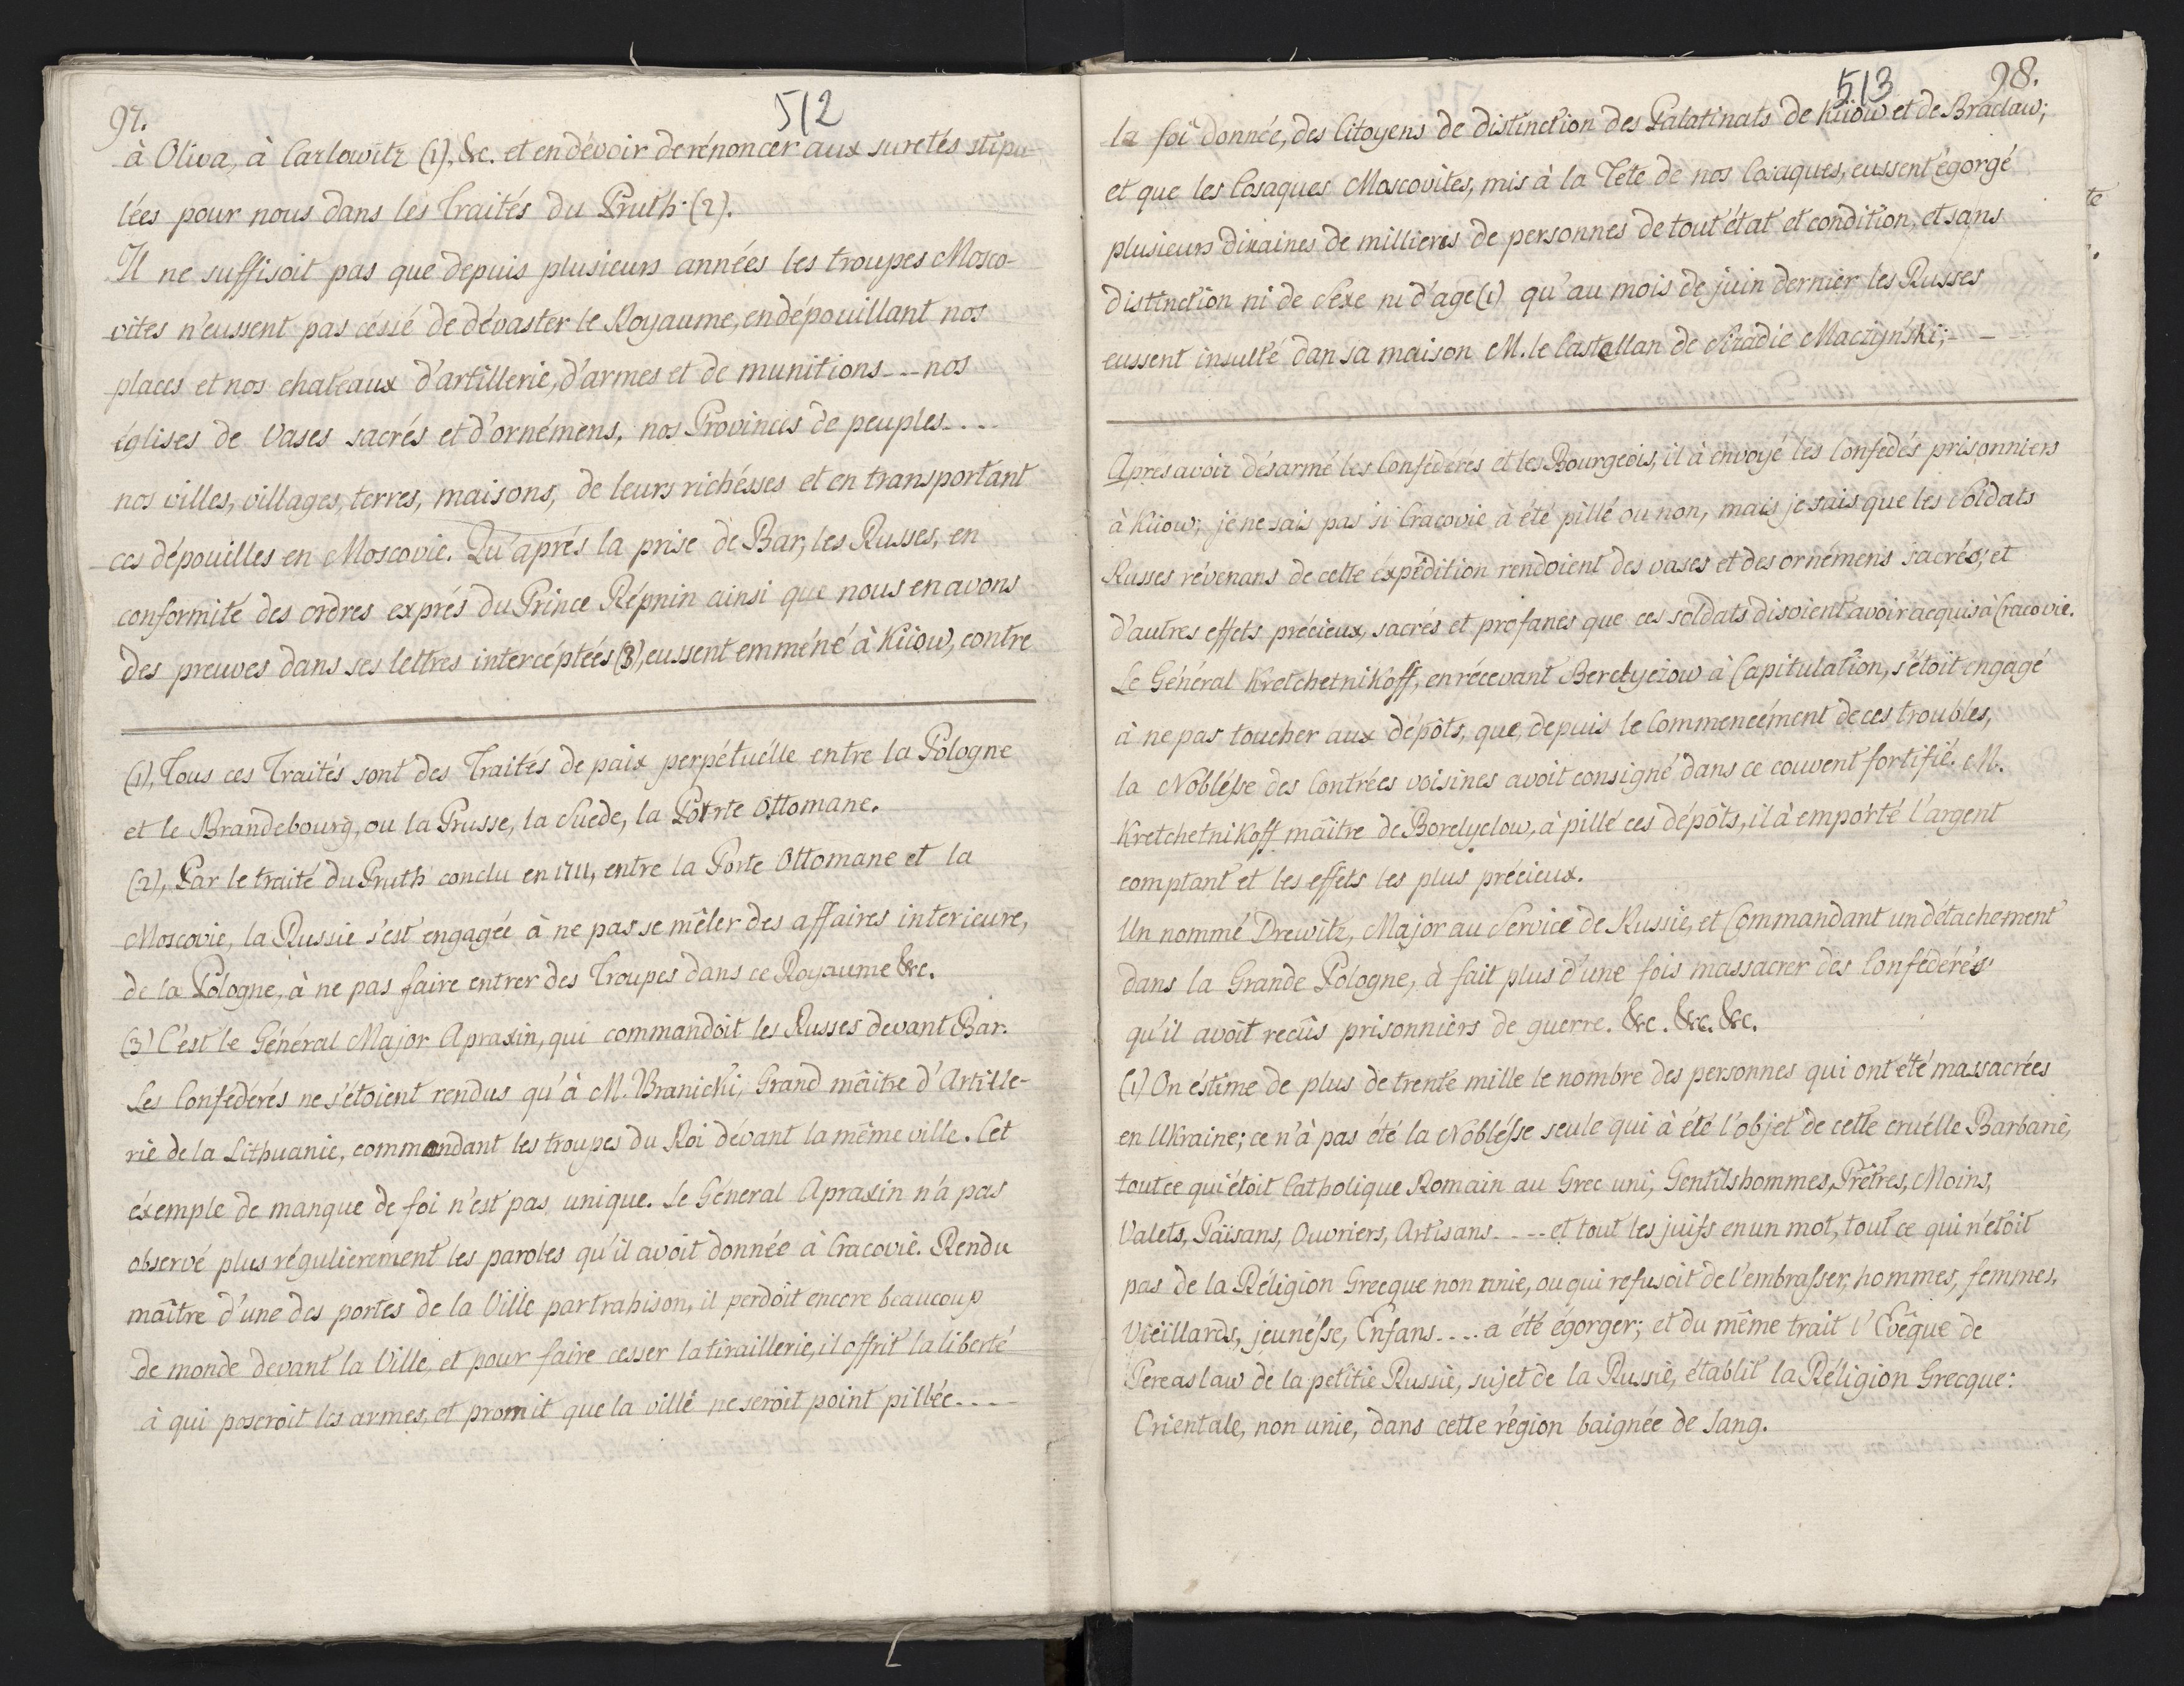 97.
512
à Oliva, à Carlowitz (1), &c. et en dévoir de rénoncer aux suretés stipu-
lées pour nous dans les Traités du Pruth. (2).
Il ne suffisoit pas que depuis plusieurs années les troupes Mosco-
vites n'eussent pas céssé de dévaster le Royaume, en dépouillant nos
places et nos chateaux d'artillerie, d'armes et de munitions - - nos
églises de Vases sacrés et d'ornémens, nos Provinces de peuples - - - -
nos villes, villages, terres, maisons, de leurs richésses et en transportant
ces dépouilles en Moscovie. Qu'aprés la prise de Bar, les Russes, en
conformité des ordres exprés du Prince Répnin ainsi que nous en avons
des preuves dans ses lettres intercéptées (3), eussent emméné à Kiiow, contre
(1), Tous ces Traités sont des Traités de paix perpétuélle entre la Pologne
et le Brandebourg, ou la Prusse, la Suede, la Porte Ottomane.
(2), Par le traité du Pruth conclu en 1711, entre la Porte Ottomane et la
Moscovie, la Russie s'est engagée à ne pas se mêler des affaires interieure,
de la Pologne, à ne pas faire entrer des Troupes dans ce Royaume &c.
(3) C'est le Général Major Apraxin, qui commandoit les Russes devant Bar.
Les Confédérés ne s'étoient rendus qu'à M. Branicki, Grand mâitre d'Artille-
rie de la Lithuanie, commandant les troupes du Roi dévant la même ville. Cet
éxemple de manque de foi n'est pas unique. Le Géneral Apraxin n'a pas
observé plus régulierement les paroles qu'il avoit donnée à Cracovie. Rendu
maître d'une des portes de la Ville par trahison, il perdoit encore beaucoup
de monde devant la Ville, et pour faire cesser la tiraillerie, il offrit la liberté
à qui poseroit les armes, et promit que la ville ne seroit point pillée - - - -
513
98.
la foi donnée, des Citoyens de distinction des Palatinats de Kiiow et de Braclaw;
et que les Cosaques Moscovites, mis à la Tête de nos Cosaques, eussent égorgé
plusieurs dixaines de millieres de personnes de tout état et condition, et sans
distinction ni de Sexe ni d'age (1) qu'au mois de juin dernier les Russes
eussent insulté dan sa maison M. le Castellan de Siradie Maczyński; - -
Aprés avoir désarmé les Conféderés et les Bourgeois, il à envoyé les Confedés prisonniers
à Kiiow; je ne sais pas si Cracovie à été pillé ou non, mais je sais que les Soldats
Russes révenans de cette éxpédition rendoient des vases et des ornémens sacrés, et
d'autres effets précieux, sacrés et profanes que ces soldats disoient avoir acquis à Cracovie.
Le Général Kretchetnikoff, en récevant Berdyczow à Capitulation, s'étoit engagé
à ne pas toucher aux dépôts, que, depuis le Commencément de ces troubles,
la Nobléſse des Contrées voisines avoit consigné dans ce couvent fortifié. M.
Kretchetnikoff mâitre de Borelyclow, à pillé ces dépôts, il à emporté l'argent
comptant et les effets les plus précieux.
Un nommé Drewitz, Major au Service de Russie, et Commandant un détachement
dans la Grande Pologne, à fait plus d'une fois massacrer des Confédérés
qu'il avoit recûs prisonniers de guerre. &c. &c. &c.
(1) On éstime de plus de trente mille le nombre des personnes qui ont été massacrées
en Ukraine; ce n'à pas été la Nobléſse seule qui à été l'objet de cette cruélle Barbarie,
tout ce qui étoit Catholique Romain au Grec uni, Gentilshommes, Prêtres, Moins,
Valets, Païsans, Ouvriers, Artisans - - - - et tout les juifs en un mot, tout ce qui n'etoit
pas de la Réligion Grecque non unie, ou qui refusoit de l'embraſser, hommes, femmes,
Vieillards, jeunéſse, Enfans - - - - a été égorger; et du même trait l'Evêque de
Pereaslaw de la petitie Russie, sujet de la Russie, établit la Réligion Grecque:
Orientale, non unie, dans cette région baignée de Sang.
te